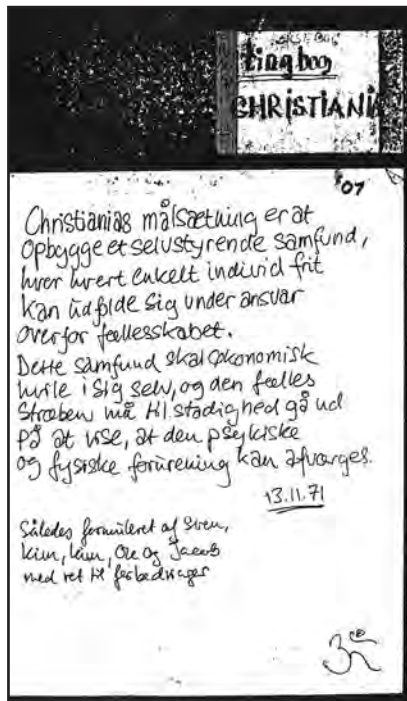 tingbog
CHRISTIANIA
07
Christianias målsætning er at
opbygge et selvstyrende samfund,
hvor hvert enkelt individ frit
kan udfolde sig under ansvar
overfor fællesskabet.
Dette samfund skal økonomisk
hvile i sig selv, og den fælles
stræben må til stadighed gå ud
på at vise, at den psykiske
og fysiske forurening kan afværges.
13.11.71
Således formuleret af Sven,
Kim, Kim, Ole og Jacob
med ret til forbedringer